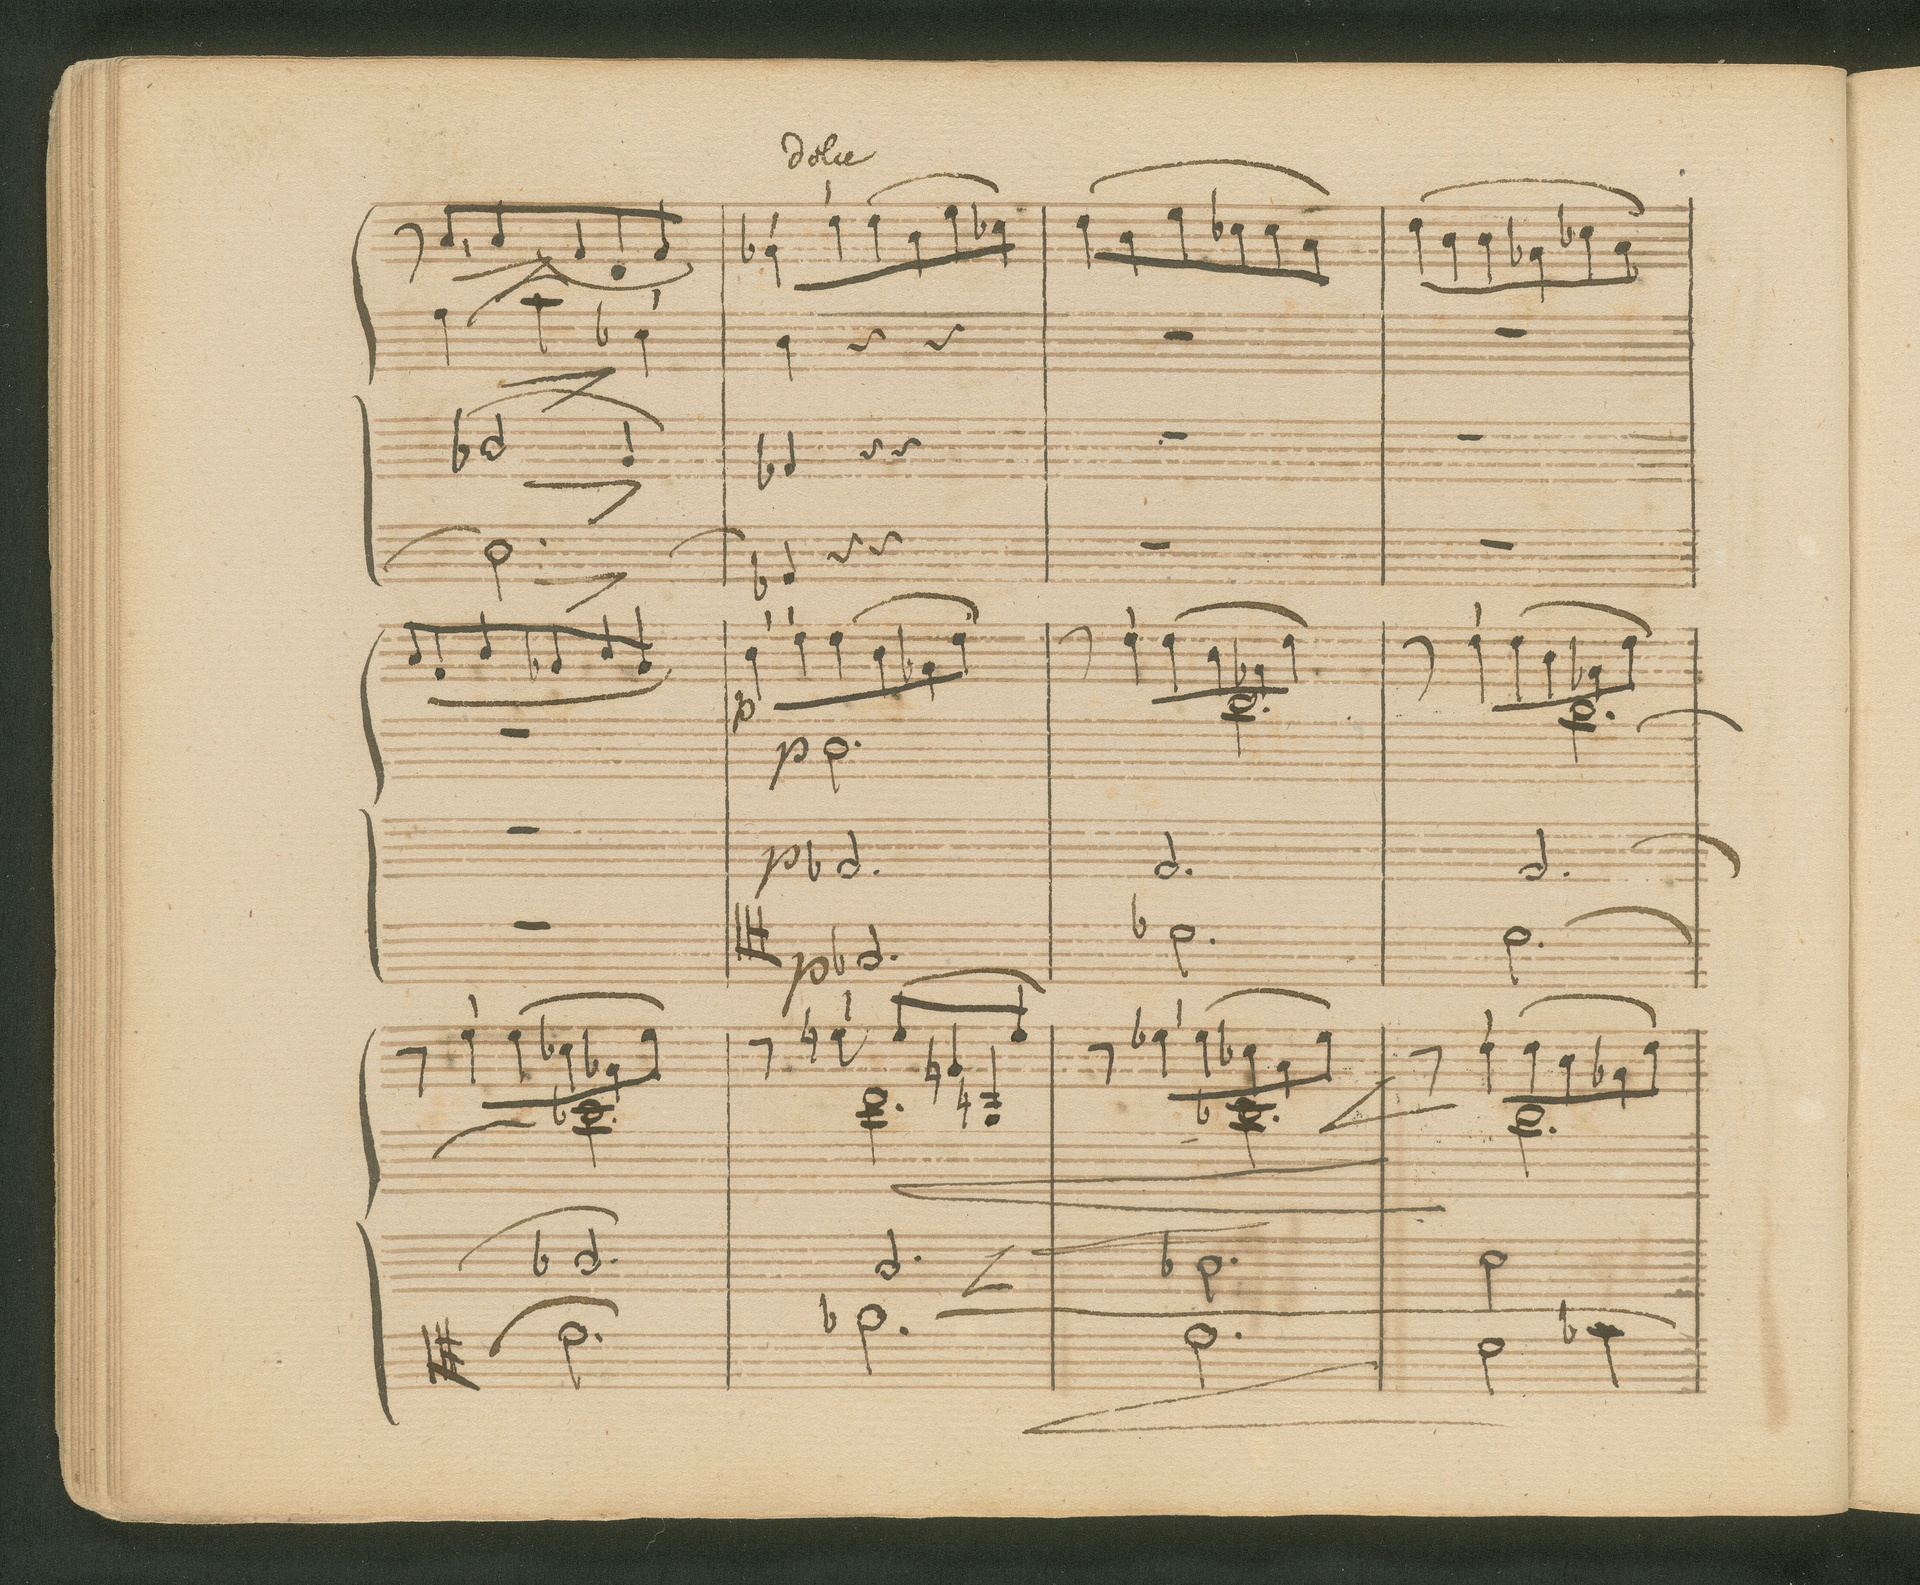 dolce
p
p
p
p